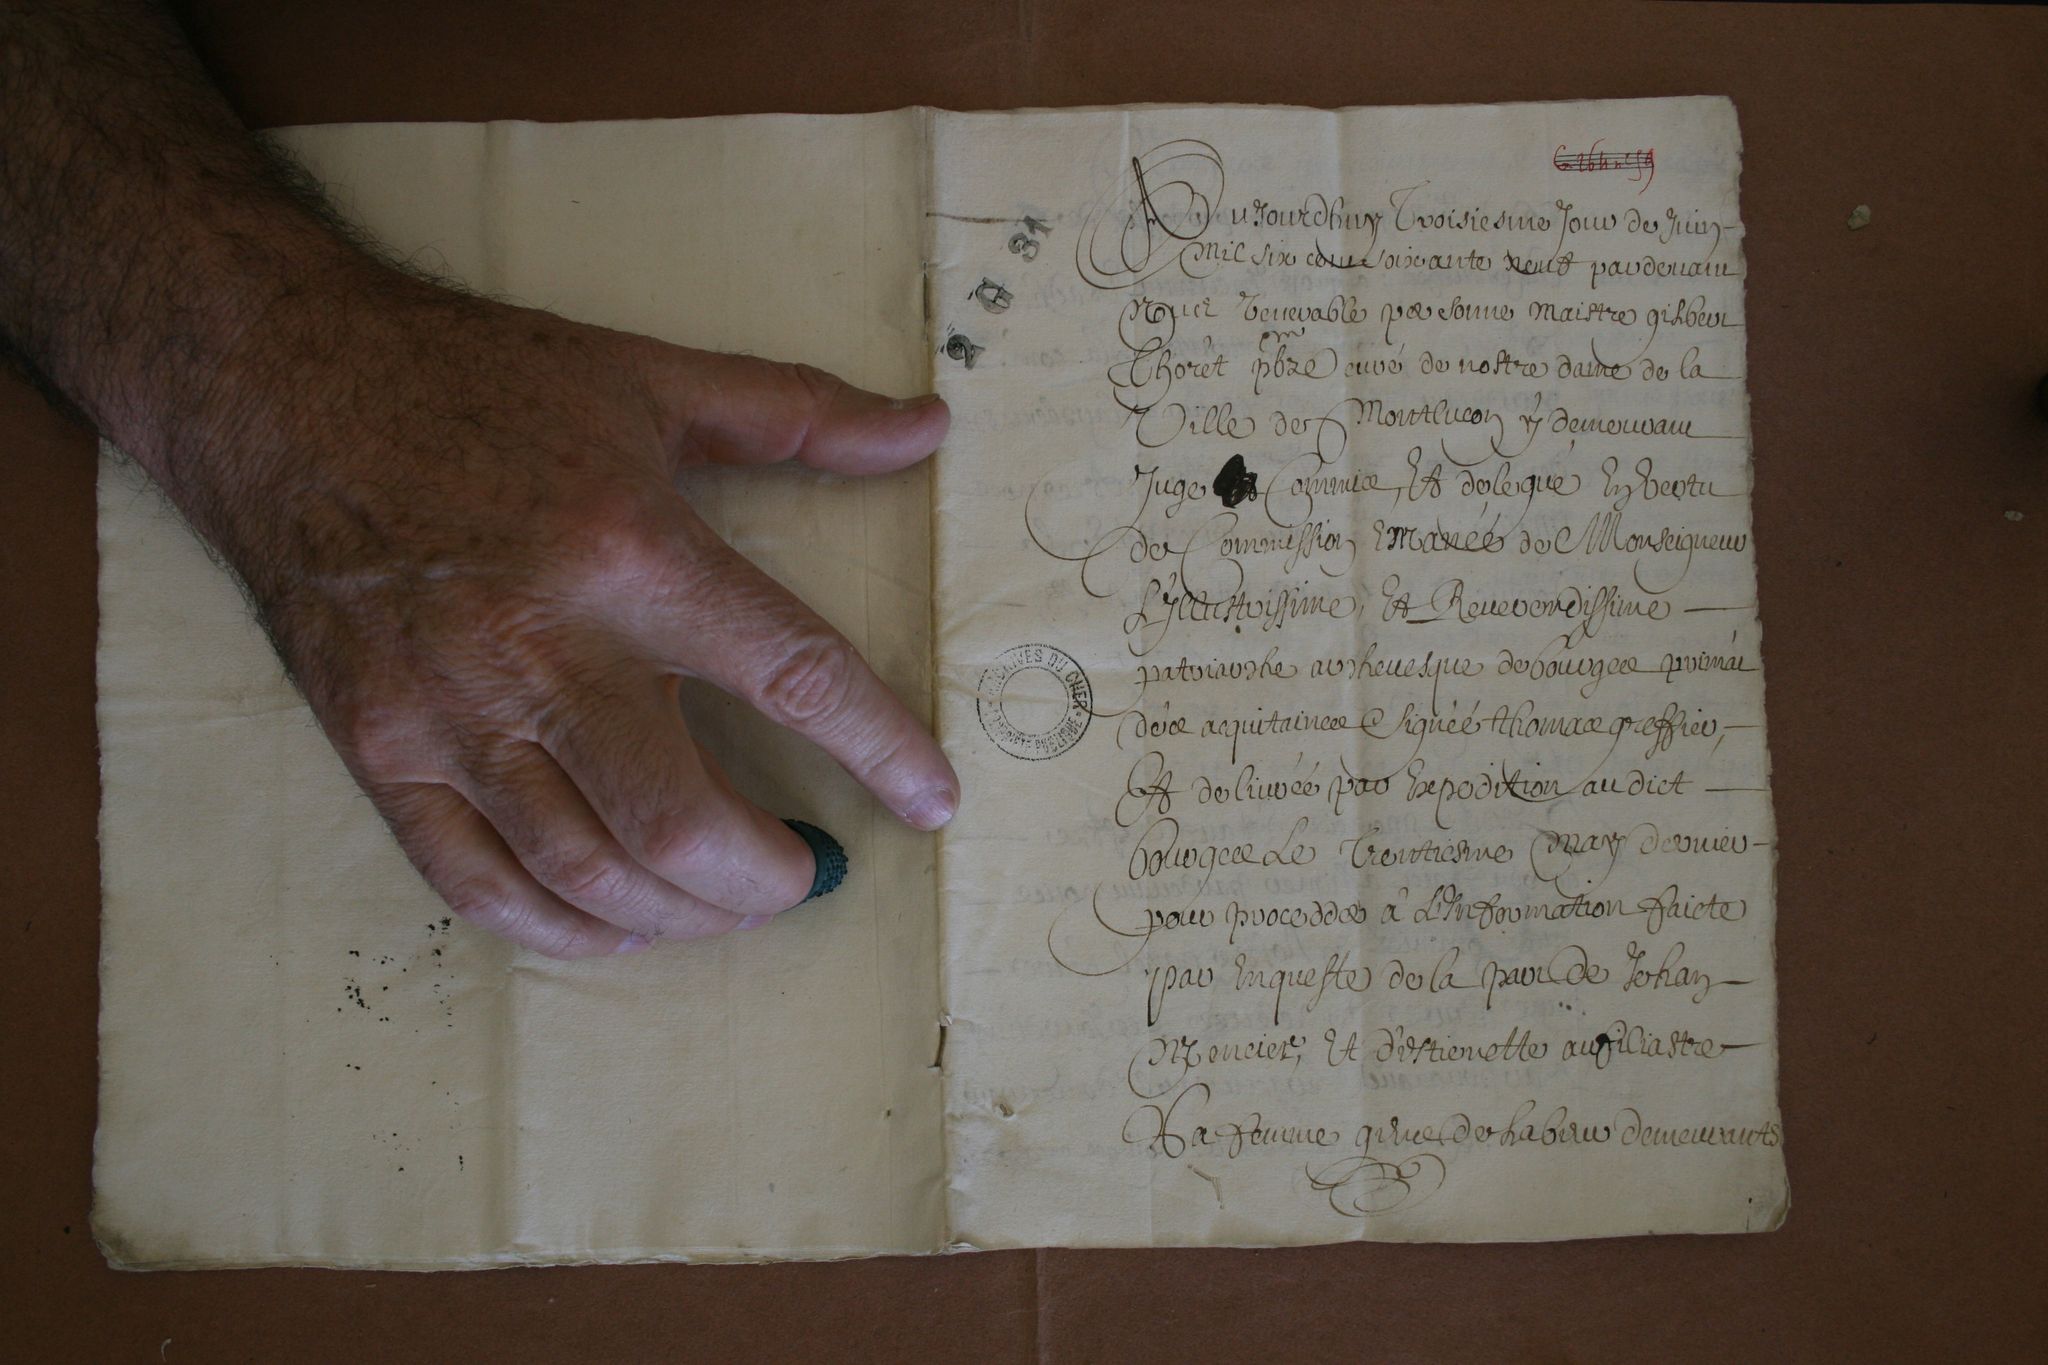 2 G 31
Aujourdhuy Troisiesme Jour de Juin
Mil six cent soixante neuf pardevant
Nous Venerable personne Maistre gilbert
Thoret pbre curé de nostre dame de la
Ville de Montlucon y demeurant
Juge Commis, Et delegué En Vertu
de Commission Emanéé de Monseigneur
L'Yllustrissime, Et Reverendissime
patriarche archevesque de bourges primat
des acquitaines Signéé thomas greffier,
Et delivréé par Expedition audict
bourges Le Trentiesme May dernier
pour proceder à L'Information faicte
par Enqueste de la part de Jehan
Mercier, Et d'Estiennette aufiliastre
Sa femme demeurants
ARCHIVES DU CHER